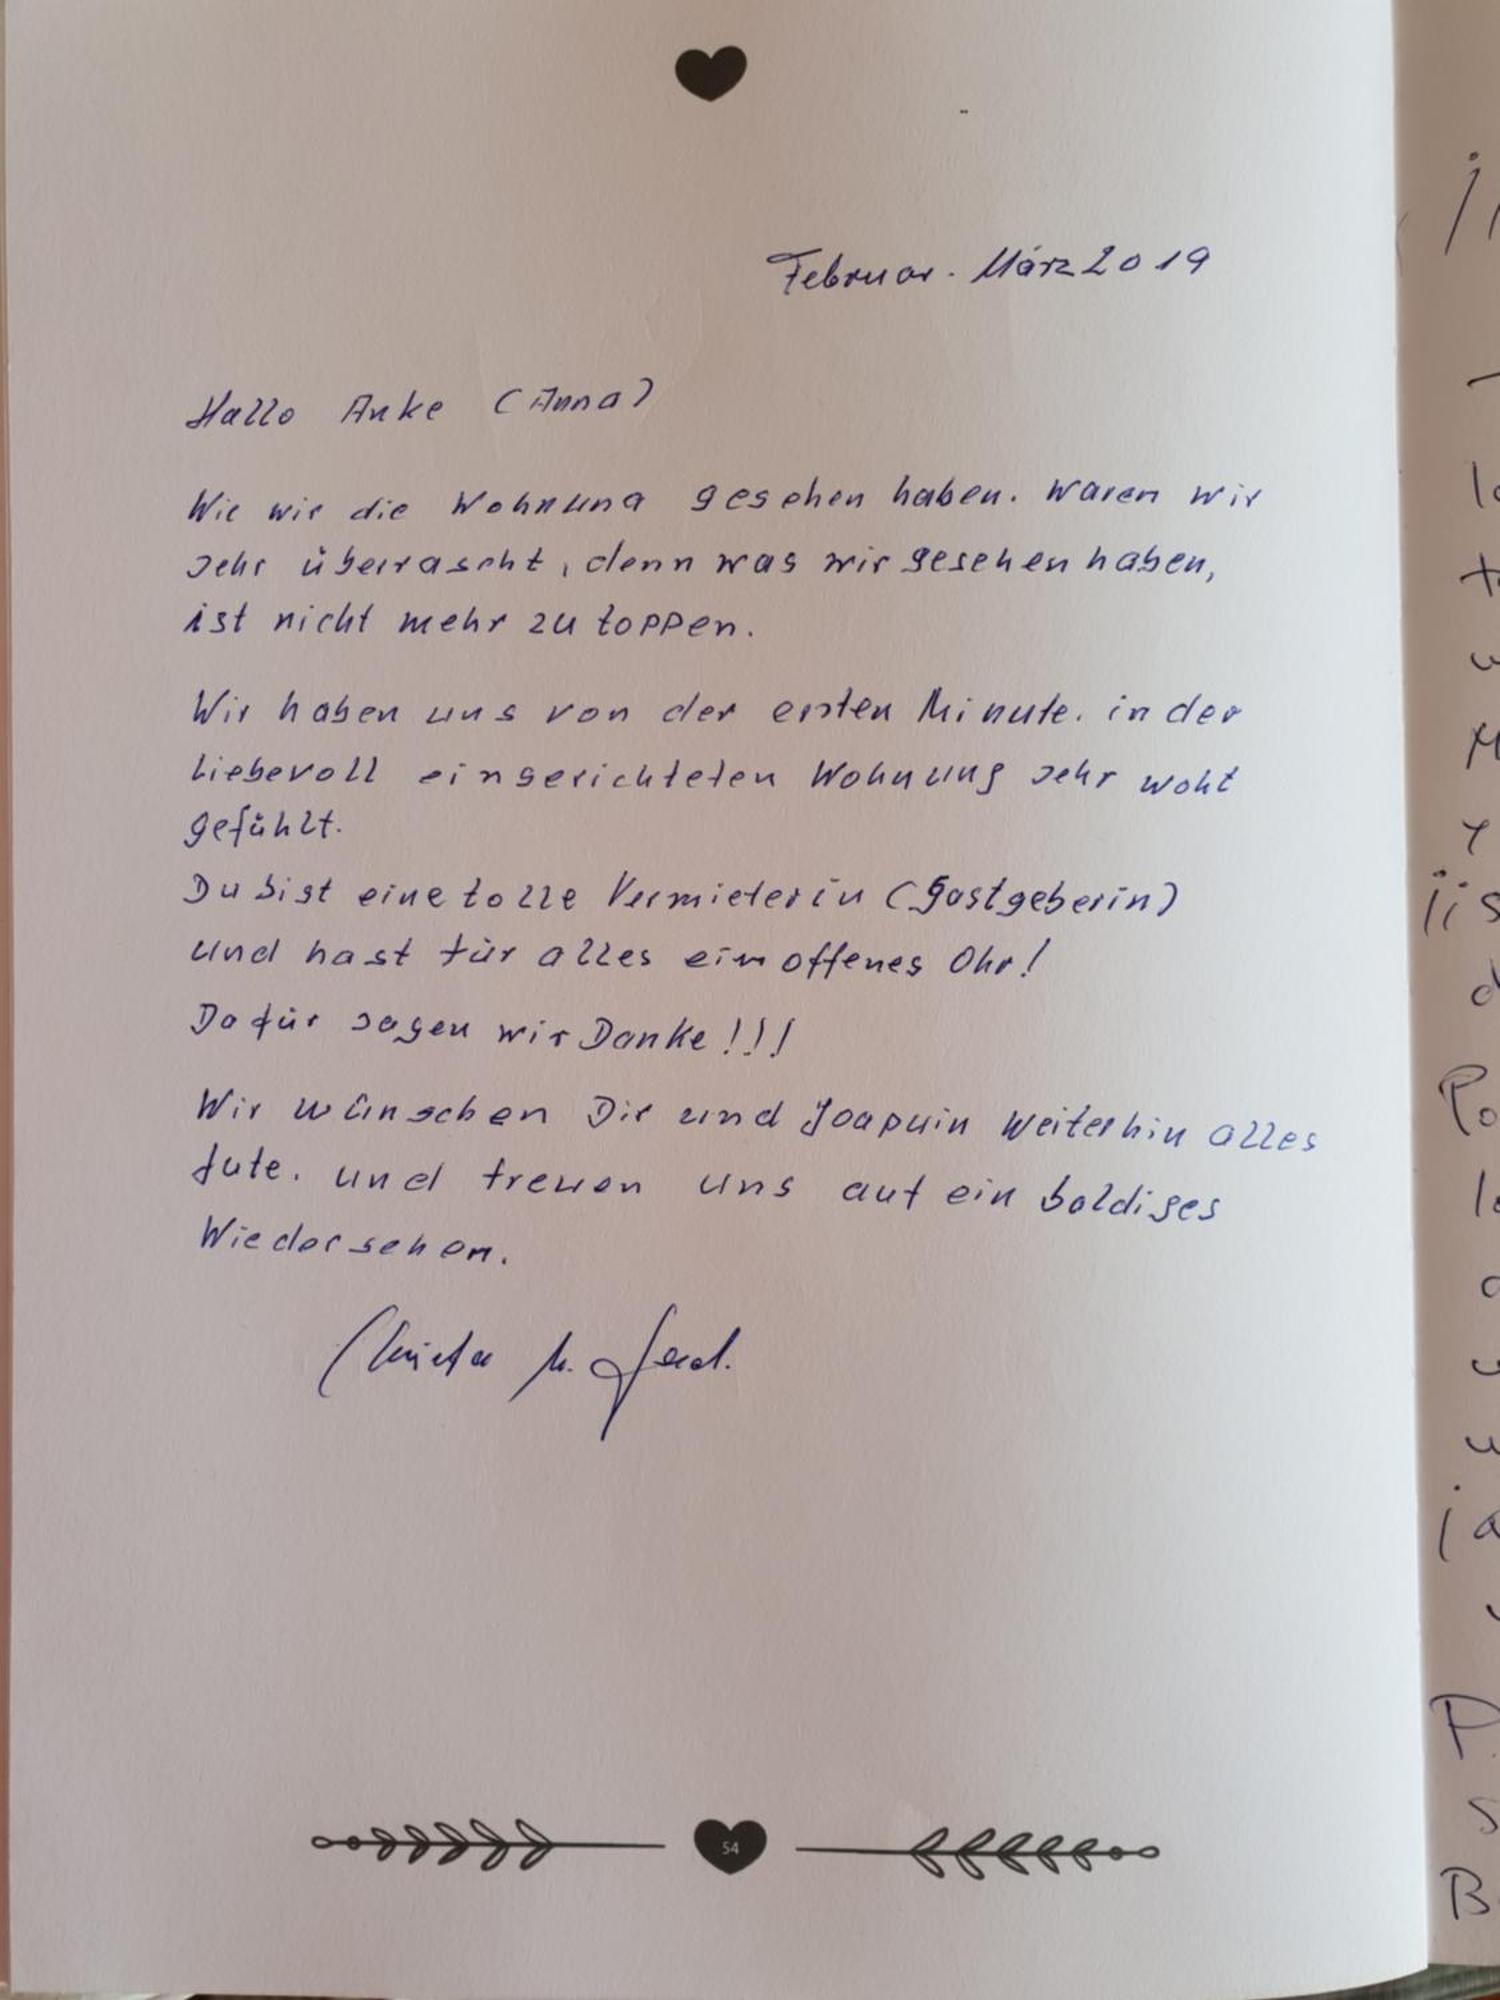 Februar. März 2019
Hallo Anke (Anna)
Wie wir die Wohnung gesehen haben. Waren wir
sehr überrascht, denn was wir gesehen haben,
ist nicht mehr zu toppen.
Wir haben uns von der ersten Minute. in der
liebevoll eingerichteten Wohnung sehr wohl
gefühlt.
Du bist eine tolle Vermieterin (Gastgeberin)
und hast für alles ein offenes Ohr!
Dafür sagen wir Danke!!!
Wir wünschen Dir und Joaquin weiterhin alles
gute. und freuen uns auf ein baldiges
Wiedersehen.
Christa u.
54